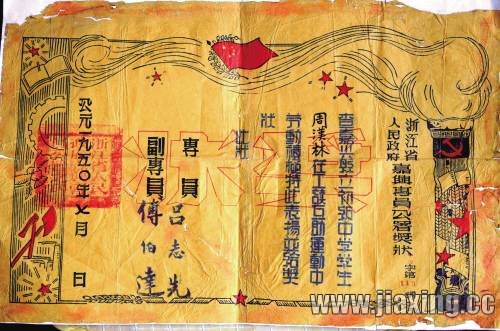 浙江省
人民政府
嘉興專員公署獎狀
字第
查嘉興縣
中學學生
周漢林在
運動中
勞動積極特此表揚並給獎
狀
此狀
專員 呂志先
副專員 傅伯達
公元一九五〇年七月 日
獎狀
www.jiaxing.cc